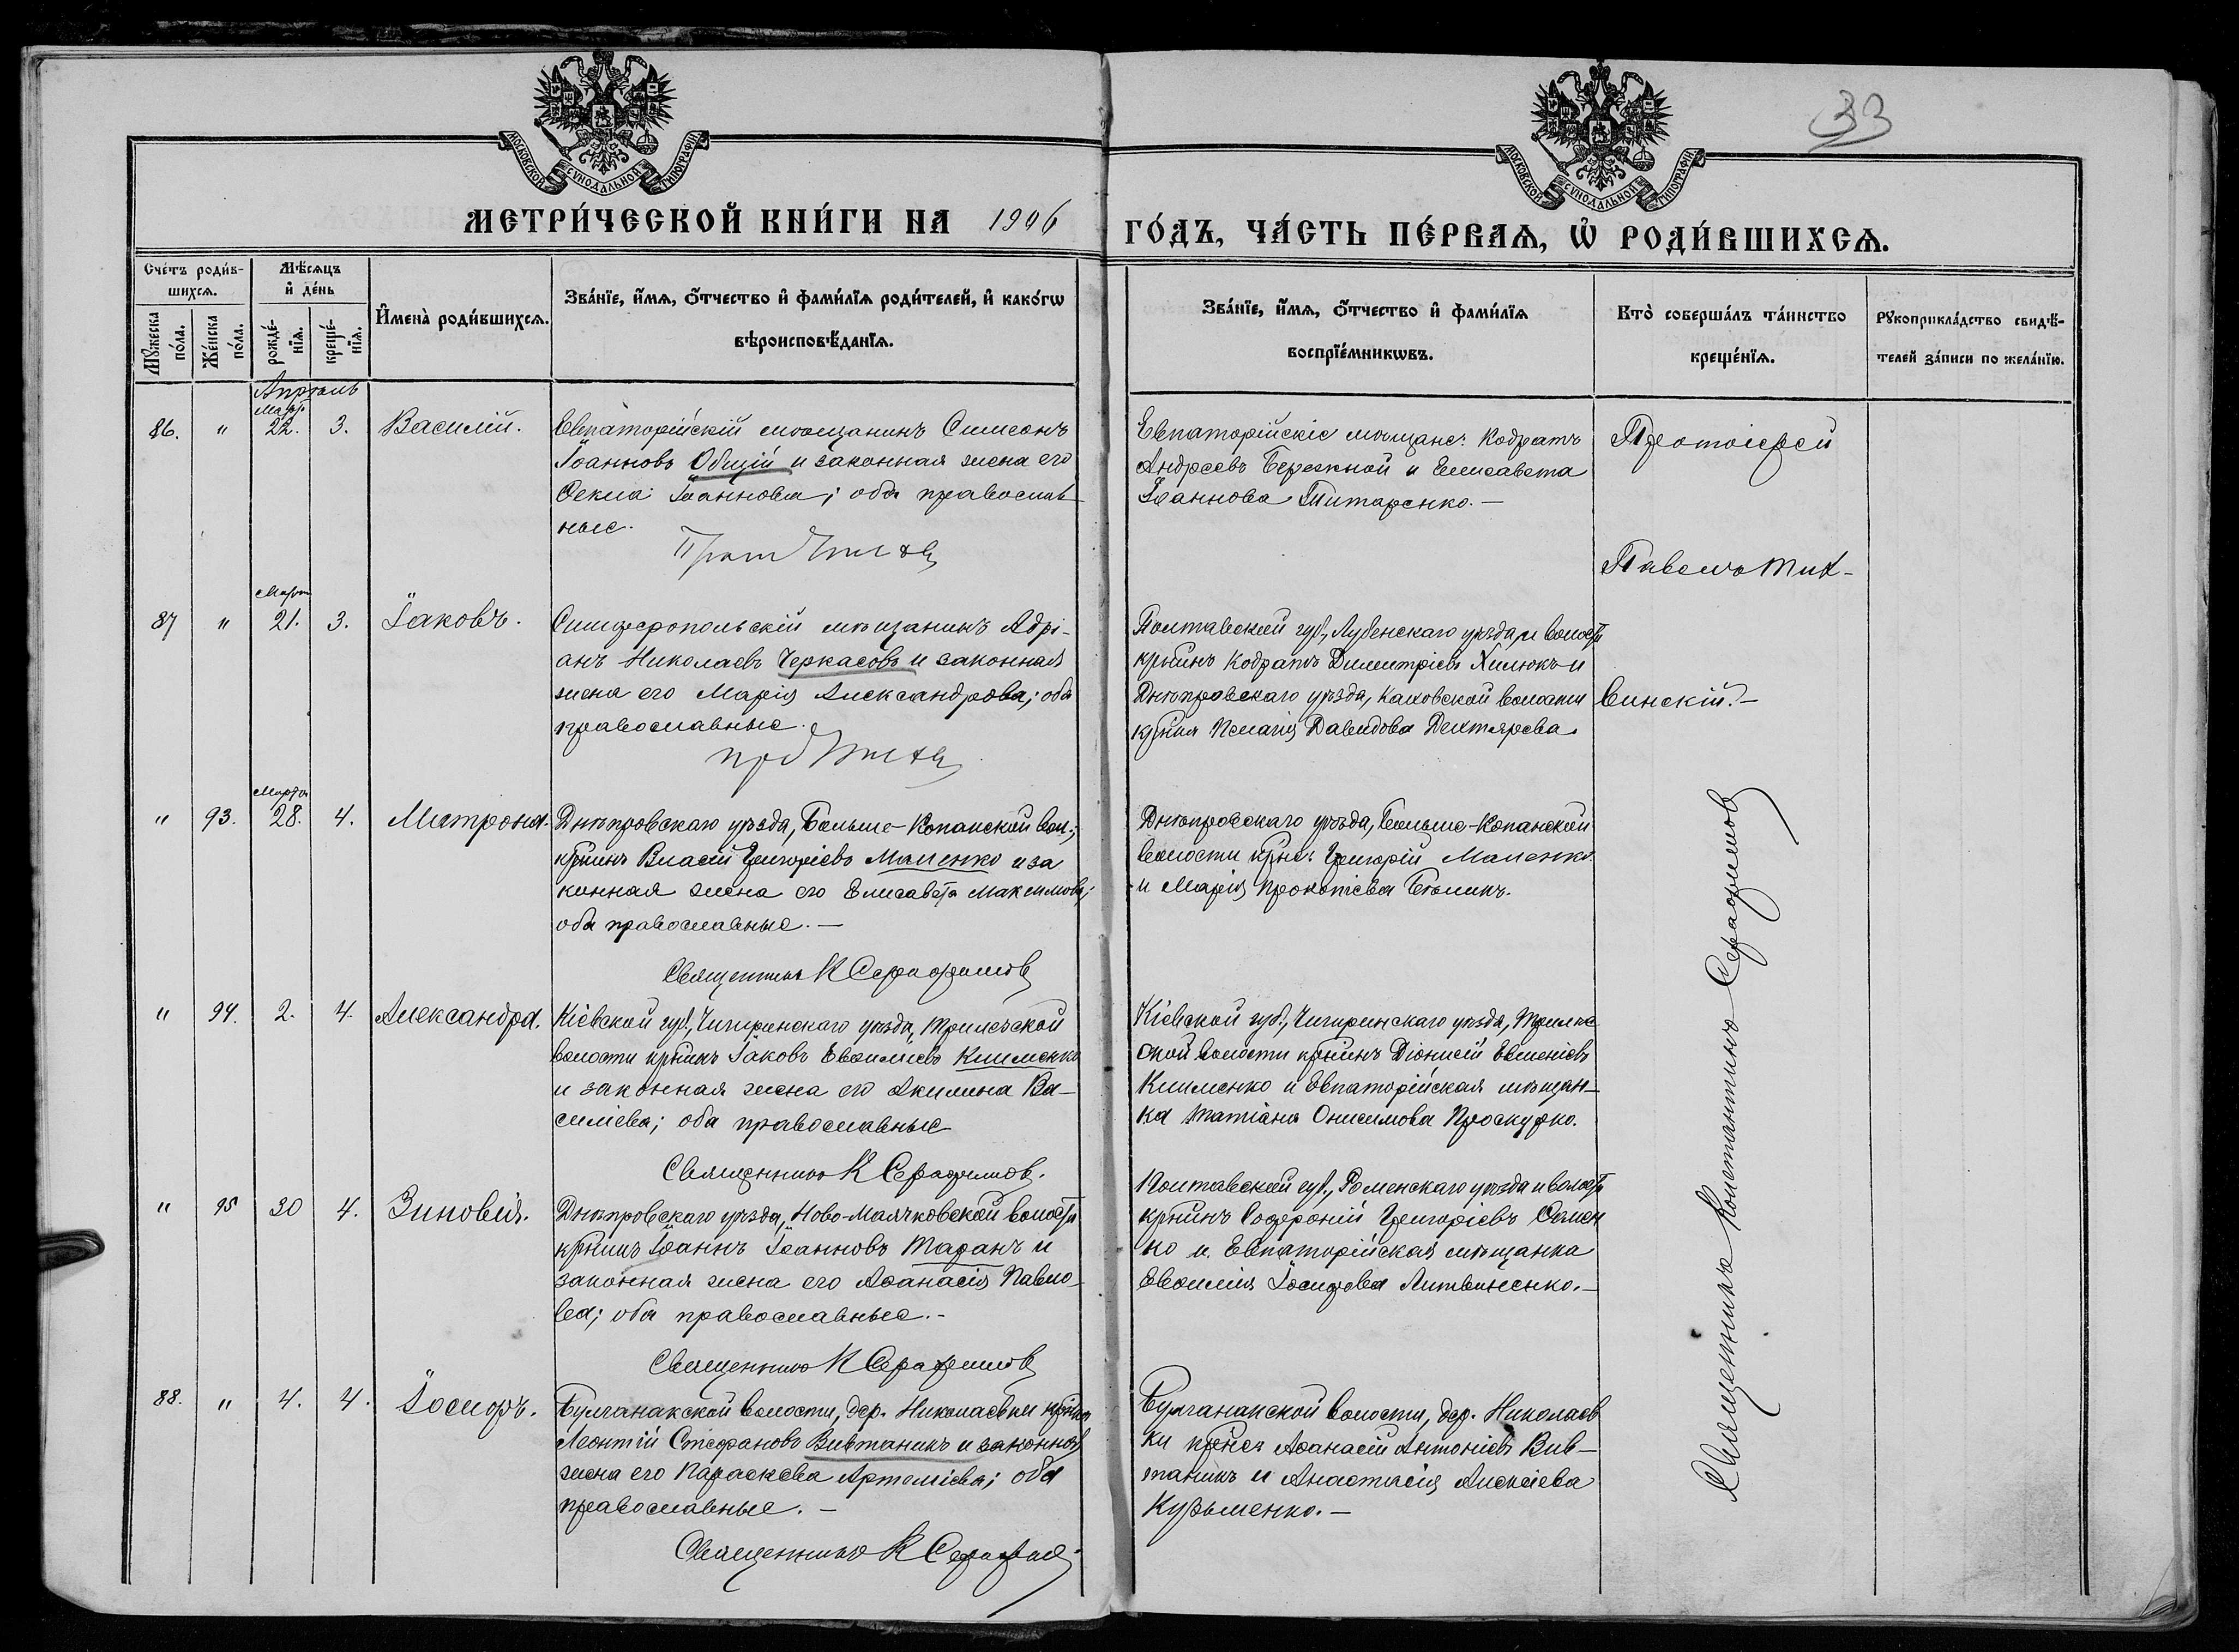 33
МОСКОВСКОЙ СУНОДАЛЬНОЙ ТИПОГРАФІИ
МОСКОВСКОЙ СУНОДАЛЬНОЙ ТИПОГРАФІИ
МЕТРИ́ЧЕСКОЙ КНИ́ГИ НА 1906
ГО́ДЪ, ЧА́СТЬ ПЕ́РВАѦ, Ѡ РОДИ́ВШИХСѦ.
Сче́тъ роди́в-
шихсѧ.
Мꙋ́жеска
по́ла.
Же́нска
по́ла.
Мѣ́сѧцъ
и҆ де́нь
рожде́-
нїѧ.
креще́-
нїѧ.
И҆мена̀ роди́вшихсѧ.
Зва́нїе, и҆́мѧ, ѻ҆́тчество и҆ фами́лїѧ роди́телей, и҆ како́гѡ
вѣроисповѣ́данїѧ.
Зва́нїе, и҆́мѧ, ѻ҆́тчество и҆ фами́лїѧ
воспрїе́мникѡвъ.
Кто̀ соверша́лъ та́инство
креще́нїѧ.
Рꙋкоприкла́дство свидѣ́-
телей за́писи по жела́нїю.
Апрѣль
Март
86. " 22. 3. Василій.
Евпаторійскій мѣщанинъ Симеонъ
Іоанновъ Общій и законная жена его
Ѳекла Іоаннова; оба православ-
ные.
Евпаторійскіе мѣщане: Кодратъ
Андреевъ Бережной и Елисавета
Іоаннова Титаренко. —
Протоіерей
Павелъ Тих-
винскій. —
Март
87 " 21. 3. Іаковъ.
Симферопольскій мѣщанинъ Адрі-
анъ Николаевъ Черкасовъ и законная
жена его Марія Александрова; оба
православные.
Полтавской губ., Лубенскаго уѣзда и волости
кр҃нинъ Кодратъ Димитріевъ Хилюкъ и
Днѣпровскаго уѣзда, Каховской волости
кр҃нка Пелагія Давидова Дехтярева.
Марта
" 93. 28. 4. Матрона.
Днѣпровскаго уѣзда, Больше-Копанской вол.;
кр҃нинъ Власій Григоріевъ Маленко и за
конная жена его Елисавета Максимова;
оба православные. —
Священникъ К Серафимовъ
Днѣпровскаго уѣзда, Больше-Копанской
волости кр҃не: Григорій Маленко
и Марія Прокопіева Бѣликъ.
" 94. 2. 4. Александра.
Кіевской губ., Чигиринскаго уѣзда, Трилѣсской
волости кр҃нинъ Іаковъ Евѳиміевъ Клименко
и законная жена его Акилина Ва-
силіева; оба православные
Священникъ К Серафимов.
Кіевской губ., Чигиринскаго уѣзда, Трилѣс
ской волости кр҃нинъ Діонисій Евменіевъ
Клименко и Евпаторійская мѣщан-
ка Татіана Онисимова Проскурко.
" 95 30 4. Зиновія.
Днѣпровскаго уѣзда, Ново-Маячковской волости
кр҃нинъ Іоаннъ Іоанновъ Таранъ и
законная жена его Аѳанасія Павло-
ва; оба православные. -
Священникъ К Серафимовъ
Полтавской губ., Роменскаго уѣзда и волости
кр҃нинъ Софроній Григоріевъ
ко и Евпаторійская мѣщанка
Евѳимія Іосифова Литвиненко. —
88. " 4. 4. Іосифъ.
Булганакской волости, дер. Николаевки кр҃нинъ
Леонтій Стефановъ Вивтаникъ и законная
жена его Параскева Артеміева; оба
православные. —
Священникъ К Серафимов
Булганакской волости, дер. Николаев
ки кр҃не: Аѳанасій Антоніевъ Вив-
таникъ и Анастасія Алексіева
Кузьменко. —
Священникъ Константинъ Серафимовъ